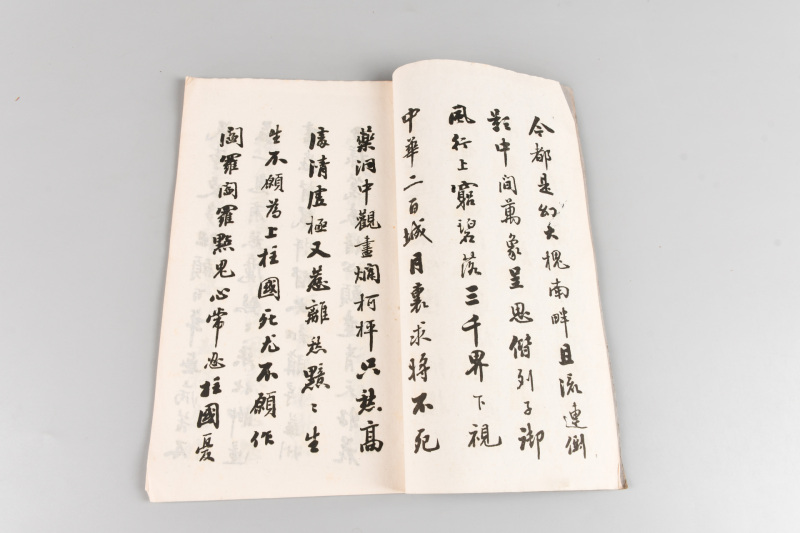 今都是幻大槐南畔且流連倒
影中間萬象呈思偕列子御
風行上窮碧落三千界下視
中華二百城月裏求將不死
藥洞中觀盡爛柯枰只愁高
處清虛極又惹離愁黯〻生
生不願為上柱國死尤不願作
閻羅閻羅點鬼心常忍柱國憂